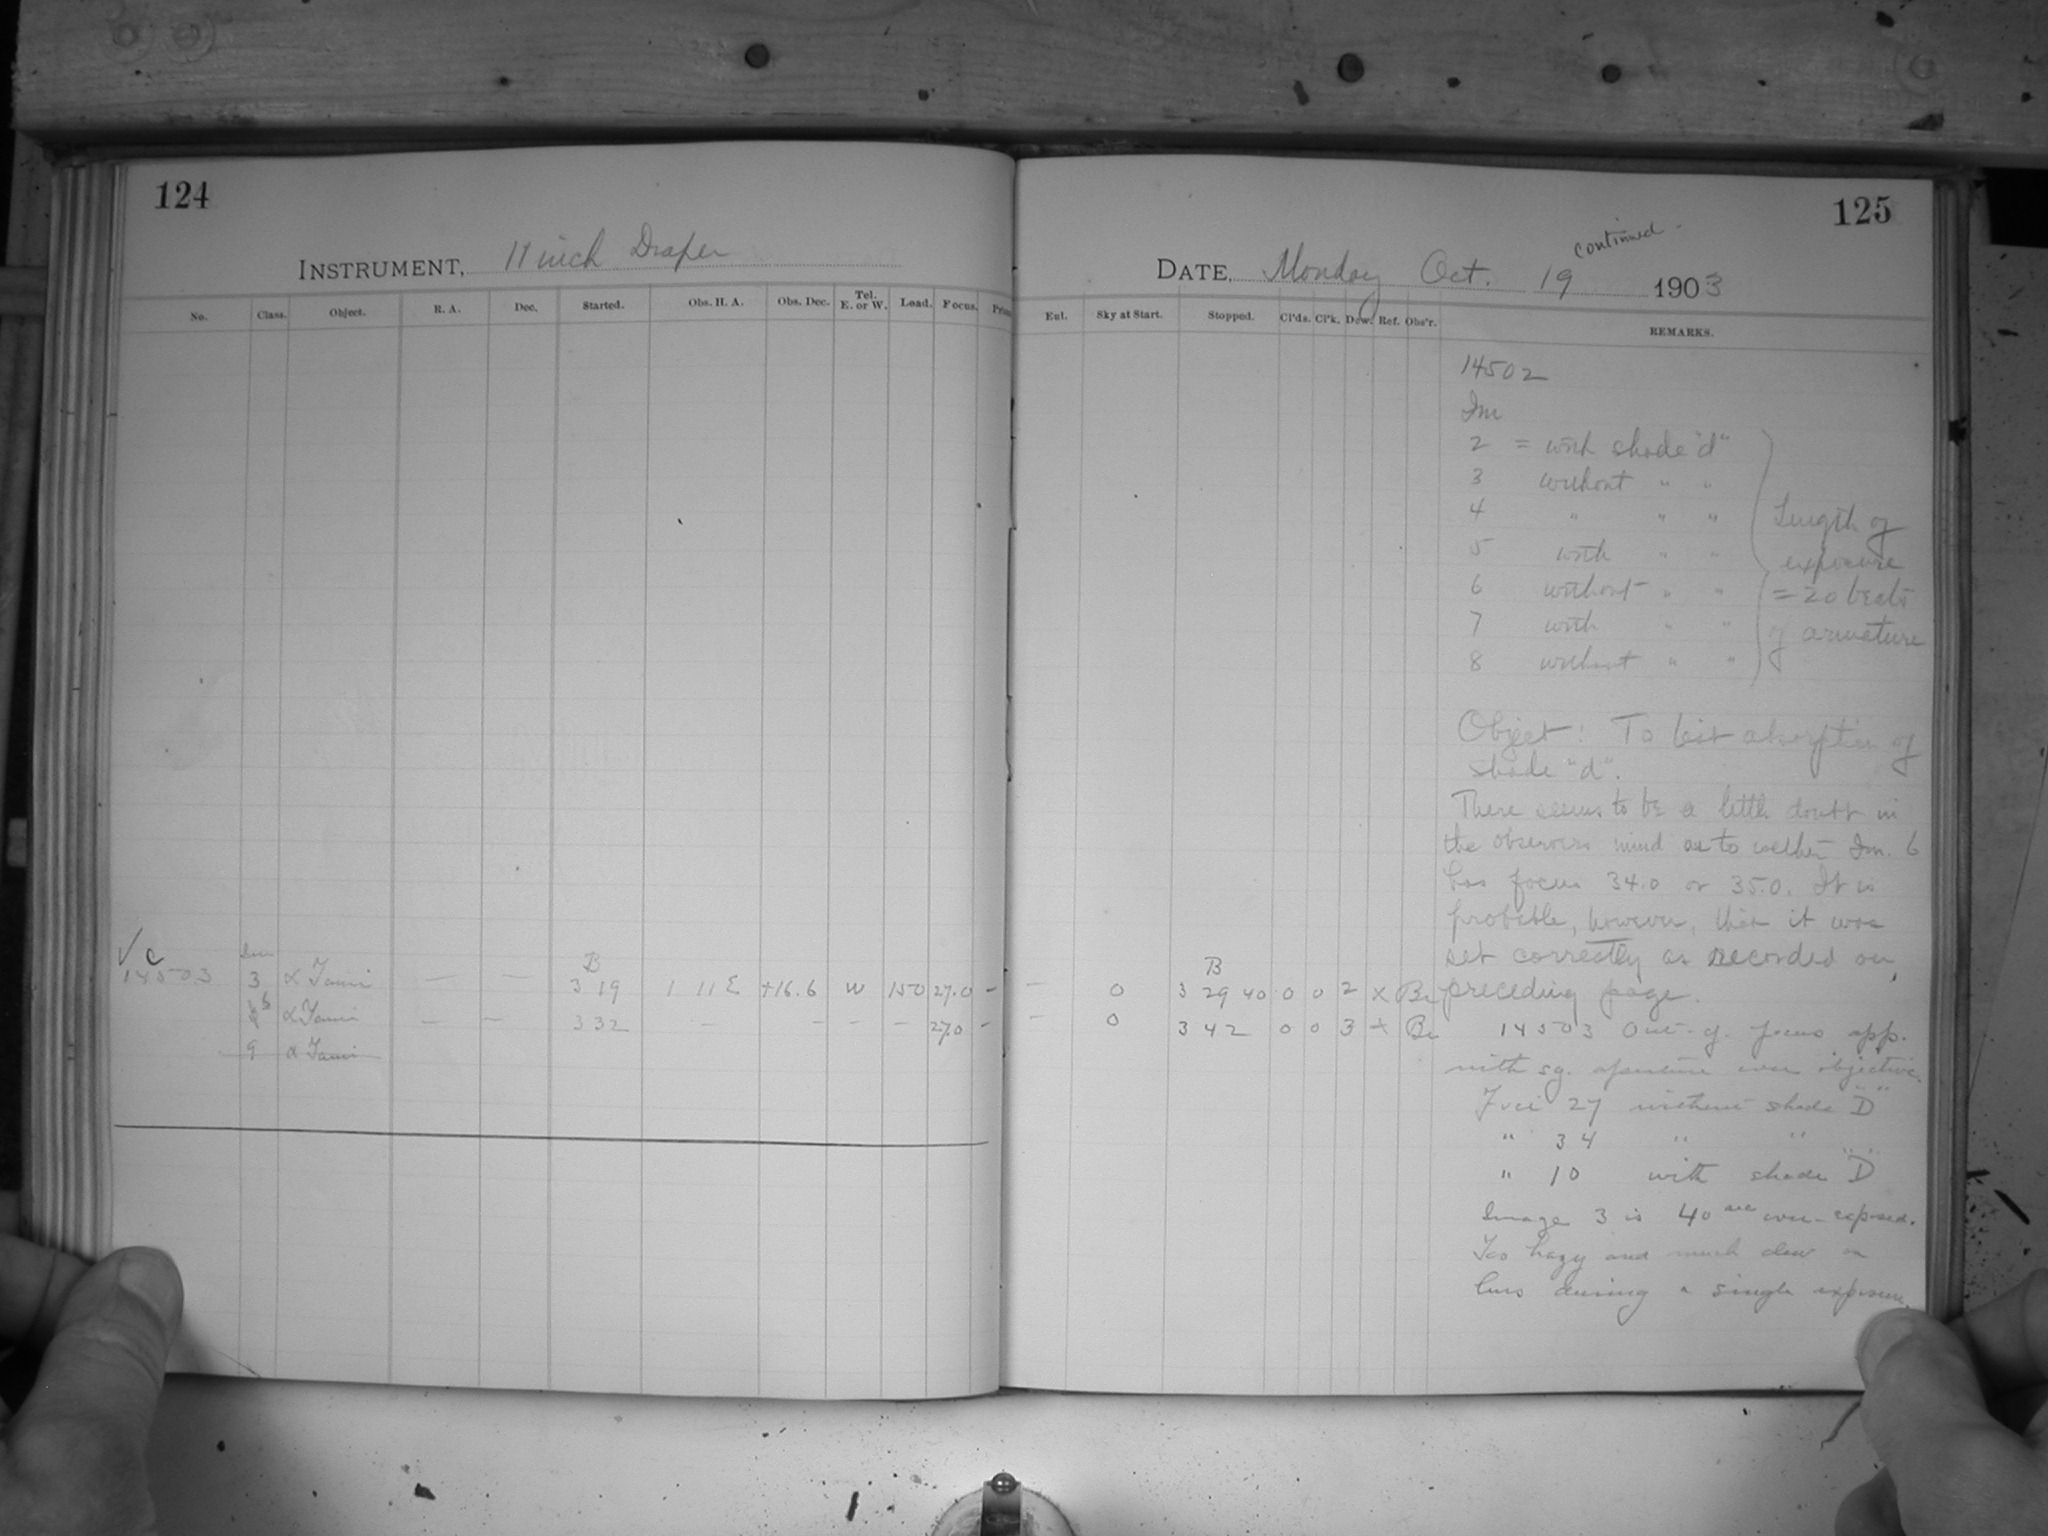 124
INSTRUMENT, 11 inch Draper
No. Class. Object. R. A. Dec. Started. Obs. H. A. Obs. Dec. Tel. E. or W. Load. Focus.
√ c Im B
14503 3 α Tauri — — 3 19 1 11 E +16.6 W 150 27.0 -
α Tauri — — 3 32 - - - - - 27.0 -
9 α Tauri
125
DATE, Monday Oct. 19 continued 1903
Eul. Sky at Start. Stopped. Cl'ds. Cl'k. Dew. Ref. Obs'r. REMARKS.
14502
Im
2 = with shade "d"
3 without " "
4 " " "
5 with " "
6 without " "
7 with " "
8 without " "
Length of
exposure
= 20 beats
of armature
Object: To test absorption of
shade "d".
There seems to be a little doubt in
the observers mind as to wether Im. 6
has focus 34.0 or 35.0. It is
probable, however, that it was
set correctly as recorded on
preceding page.
B
— 0 3 29 40 0 0 2 x Be
— 0 3 42 0 0 3 + Be
14503 Out-of-focus app.
with sq. aperture over objective.
Foci 27 without shade "D"
" 34 " "
" 10 with shade "D"
Image 3 is 40 sec over-exposed.
Too hazy and much dew on
lens during a single exposure.